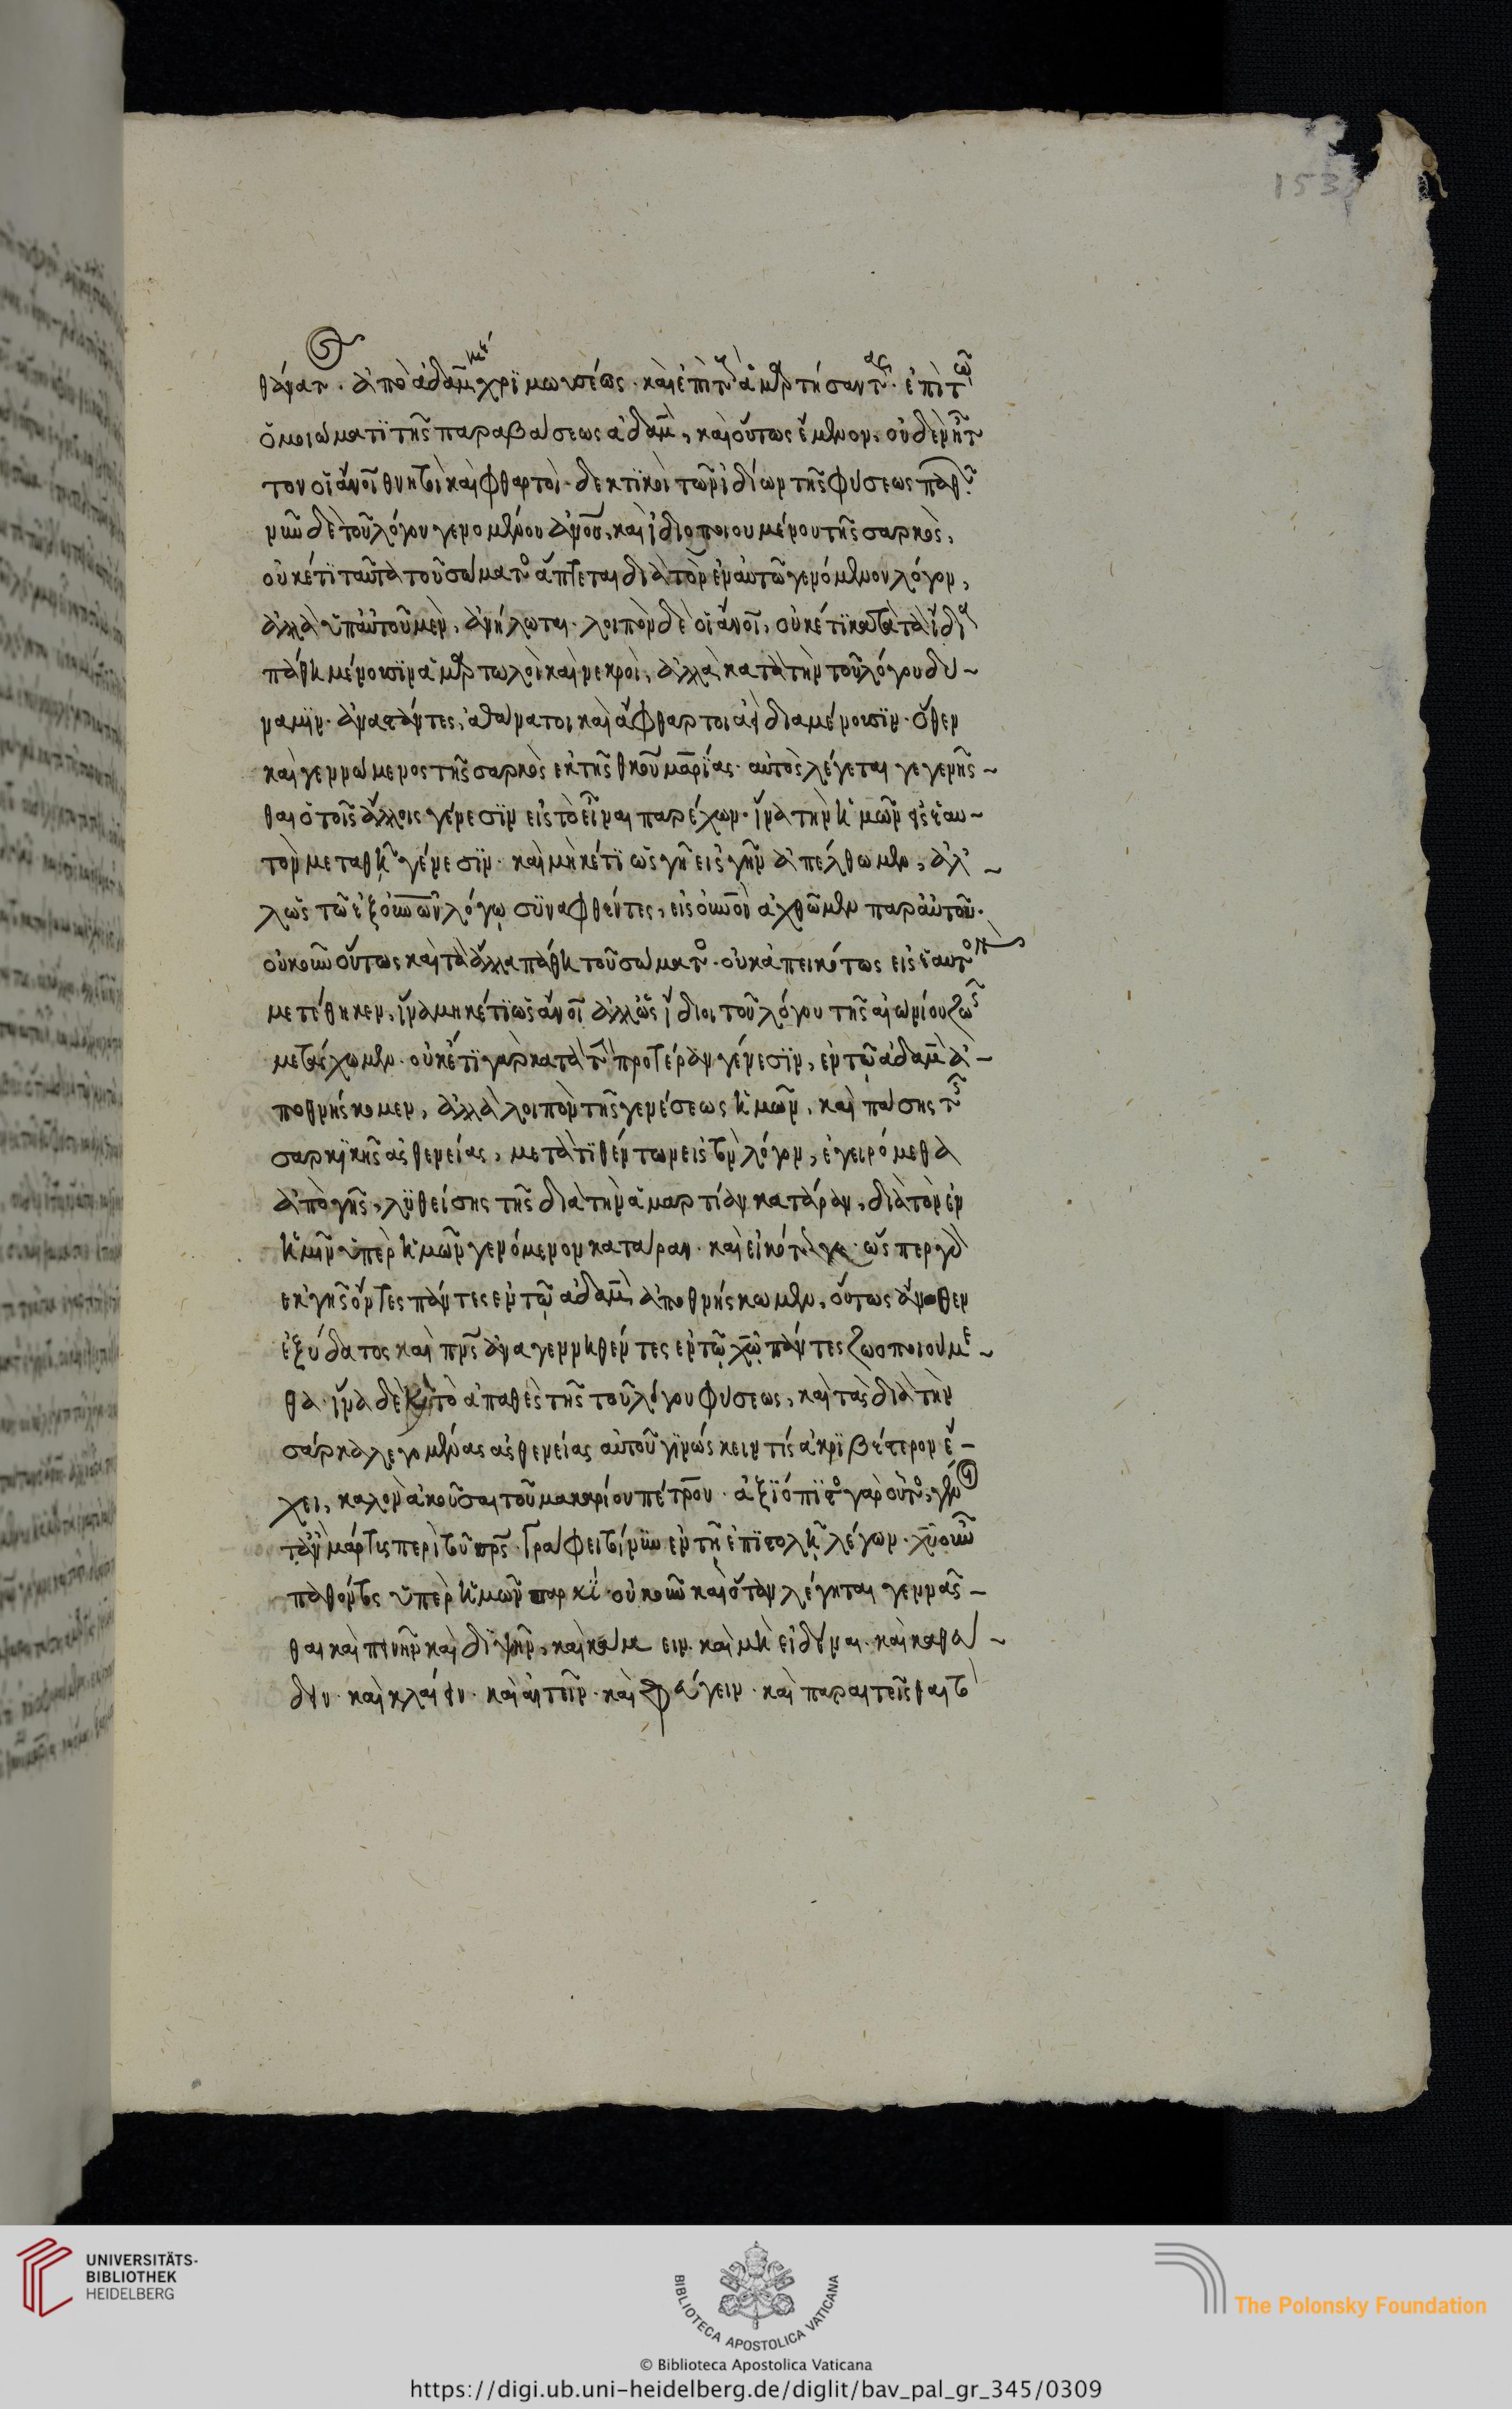 153
θάνατ. ἀπὸ ἀδαμ μέχρϊ μωυσέως. καὶ ἐπὶ τ ἁμαρτήσαντας. ἐπὶ τῶ
ὁμοιώματϊ τῆς παραβάσεως ἀδαμ, καὶ οὕτως ἔμενον, οὐδεν ἧτ
τον οἱ ἄνοι θνητοὶ καὶ φθαρτοί. δεκτϊκοὶ τῶν ἰδίων τῆς φύσεως παθῶν
νῦν δὲ τοῦ λόγου γενομένου ἀνου, καὶ ἰδιοποιουμένου τῆς σαρκὸς,
οὐκέτϊ ταῦτα τοῦ σώματος ἅπτεται διὰ τὸν ἐν αὐτῶ γενόμενον λόγον,
ἀλλὰ ὑπ αὐτοῦ μεν, ἀνήλωται. λοιπὸν δὲ οἱ ἄνοι, οὐκέτϊ κατὰ τὰ ἴδια
πάθη μένουσϊν ἁμαρτωλοὶ καὶ νεκροὶ, ἀλλὰ κατὰ τὴν τοῦ λόγου δύ~
ναμϊν. ἀναστάντες, ἀθάνατοι καὶ ἄφθαρτοι ἀεὶ διαμένουσϊν. ὅθεν
καὶ γεννώμενος τῆς σαρκὸς ἐκ τῆς θκου μαρϊας. αὐτὸς λέγεται γεγενῆς~
θαι ὁ τοῖς ἄλλοις γένεσϊν εἰς τὸ εἶναι παρέχων. ἵνα τὴν ἡμῶν εἰς ἑαυ~
τὸν μεταθῆ γένεσϊν. καὶ μηκέτϊ ὡς γῆ εἰς γῆν ἀπέλθωμεν, ἀλ~
λως τῶ ἐξ οὐνῶν λόγω συναφθέντες, εἰς οὐνοὺς ἀχθῶμεν παρ αὐτοῦ.
οὐκοῦν οὕτως καὶ τὰ ἄλλα πάθη τοῦ σώματος. οὐκ ἀπεικότως εἰς ἑαυτὸν
μετέθηκεν, ἵνα μηκέτϊ ὡς ἄνοι ἀλλ ὡς ἴδιοι τοῦ λόγου τῆς αἰωνίου ζωῆς
μετάσχωμεν. οὐκέτϊ γὰρ κατὰ τὴν προτέραν γένεσϊν, ἐν τῶ ἀδαμ ἀ~
ποθνήσκομεν, ἀλλὰ λοιπὸν τῆς γενέσεως ἡμῶν, καὶ πάσης τῆς
σαρκϊκῆς ἀσθενείας, μετατϊθέντων εἰς τὸν λόγον, ἐγειρόμεθα
ἀπὸ γῆς, λυθείσης τῆς διὰ τὴν ἁμαρτίαν κατάραν, διὰ τὸν ἐν
ἡμῖν ὑπὲρ ἡμῶν γενόμενον κατάραν. καὶ εἰκότως γε. ὥσπερ γὰρ
ἐκ γῆς ὄντες πάντες ἐν τῶ ἀδαμ ἀποθνήσκωμεν, οὕτως ἄνωθεν
ἐξ ύδατος καὶ πνς ἀναγεννηθέντες ἐν τῶ χῶ πάντες ζωοποιούμε~
θα. ἵνα δὲ καὶ τὸ ἀπαθὲς τῆς τοῦ λόγου φύσεως, καὶ τὰς διὰ τὴν
σάρκα λεγομένας ἀσθενείας αὐτοῦ γϊνώσκειν τίς ἀκρϊβέστερον ἔ~
χει, καλὸν ἀκοῦσαι τοῦ μακαρίου πέτρου. ἀξϊόπϊστος γὰρ οὗτος γέν
ταν μάρτυς περὶ τοῦ σρς. γράφει τοίνυν ἐν τῆ ἐπϊστολῆ λέγων. χυ οὖν
παθόντος ὑπὲρ ἡμῶν σαρκϊ. οὐκοῦν καὶ ὅταν λέγηται γεννᾶσ~
θαι καὶ πεινῆν καὶ διψῆν, καὶ κάμειν. καὶ μὴ εἰδέναι. καὶ καθεύ~
δειν. καὶ κλαίειν. καὶ αἰτεῖν. καὶ φεύγειν. καὶ παραιτεῖσθαι τὸ
UNIVERSITÄTS-
BIBLIOTHEK
HEIDELBERG
BIBLIOTECA APOSTOLICA VATICANA
The Polonsky Foundation
© Biblioteca Apostolica Vaticana
https://digi.ub.uni-heidelberg.de/diglit/bav_pal_gr_345/0309